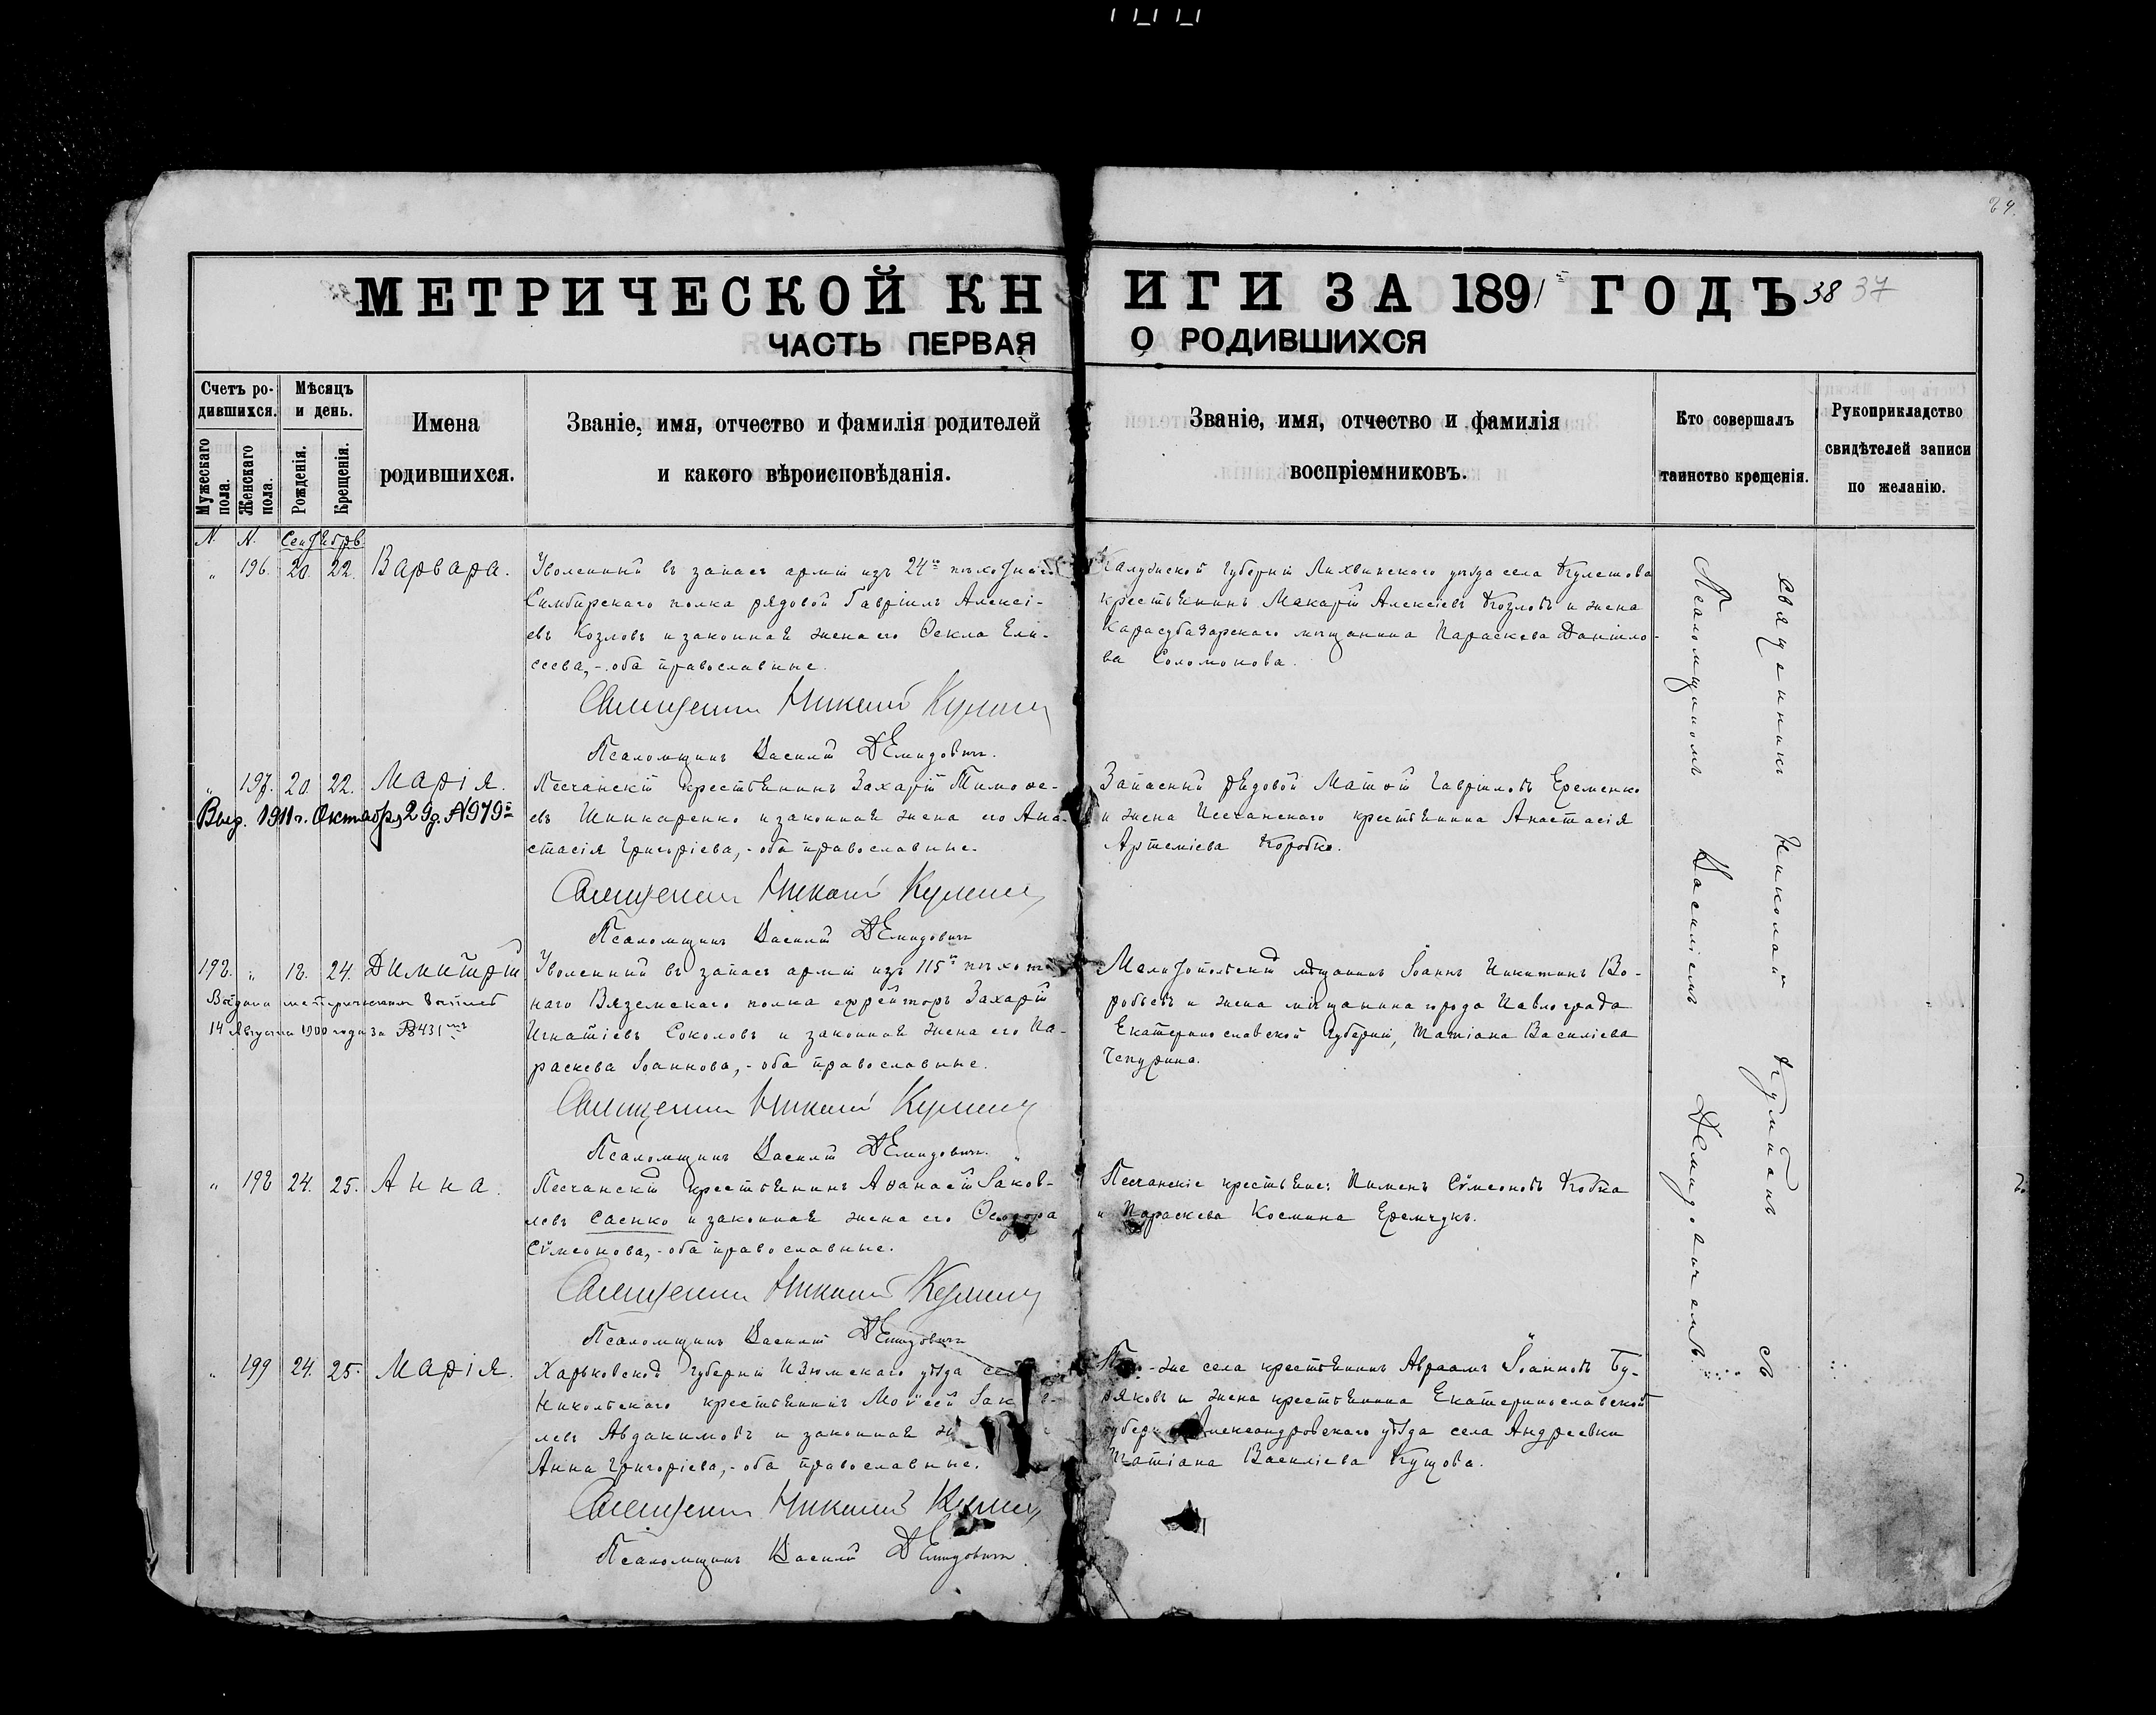 24.
МЕТРИЧЕСКОЙ КНИГИ ЗА 1891 ГОДЪ 38 37
ЧАСТЬ ПЕРВАЯ О РОДИВШИХСЯ
Счетъ родившихся.
Мужескаго пола.
Женскаго пола.
Мѣсяцъ и день.
Рожденія.
Крещенія.
Имена
родившихся.
Званіе, имя, отчество и фамилія родителей
и какого вѣроисповѣданія.
Званіе, имя, отчество и фамилія
воспріемниковъ.
Кто совершалъ
таинство крещенія.
Рукоприкладство
свидѣтелей записи
по желанію.
N. N. Сентябрь
„ 196. 20. 22. Варвара.
Уволенный въ запасъ арміи изъ 24го пѣхотнаго
Симбирскаго полка рядовой Гавріилъ Алексі-
евъ Козловъ и законная жена его Ѳекла Ели-
сеева, - оба православные.
Священникъ Николай
Псаломщикъ Василій Демидовичъ.
Калужской губерніи Лихвинскаго уѣзда села Кулешова
крестьянинъ Макарій Алексіевъ Козловъ и жена
Карасубазарскаго мѣщанина Параскева Даніило-
ва Соломонова.
„ 197. 20. 22. Марія.
Выд. 1911 г. Октября 29 д. №979
Песчанскій крестьянинъ Захарій Тимоѳе-
евъ Шинкаренко и законная жена его Ана-
стасія Григоріева, - оба православные.
Священникъ Николай
Псаломщикъ Василій Демидовичъ
Запасный рядовой Матѳій Гавріиловъ Еременко
и жена Песчанскаго крестьянина Анастасія
Артеміева Коробко.
192. „ 18. 24. Димитрій
14 Августа 1900 года за №431
Уволенный въ запасъ арміи изъ 115го пѣхот-
наго Вяземскаго полка ефрейторъ Захарій
Игнатіевъ Соколовъ и законная жена его Па-
раскева Іоаннова, - оба православные.
Священникъ Николай
Псаломщикъ Василій Демидовичъ.
Мелитопольскій мѣщанинъ Іоаннъ Никитинъ Во-
робьевъ и жена мѣщанина города Павлограда
Екатеринославской губерніи, Татіана Василіева
Чепурина.
„ 198 24. 25. Анна.
Песчанскій крестьянинъ Аѳанасій Іаков-
левъ Саенко и законная жена его Ѳеодора
Сѵмеонова, - оба православные.
Священникъ Николай
Псаломщикъ Василій Демидовичъ
Песчанскіе крестьяне: Пименъ Сѵмеоновъ Кобка
и Параскева Космина Еремчукъ.
„ 199 24. 25. Марія.
Харьковской губерніи Изюмскаго уѣзда
Никольскаго крестьянинъ Моѵсей
левъ Авдакимовъ и законная
Анна Григоріева, - оба православные.
Священникъ Николай
Псаломщикъ Василій Демидовичъ.
же села крестьянинъ Авраамъ Іоанновъ Бу-
ряковъ и жена крестьянина Екатеринославской
Александровскаго уѣзда села Андреевки
Татіана Василіева Куцова.
Священникъ Николай съ
Псаломщикомъ Василіемъ Демидовичемъ.